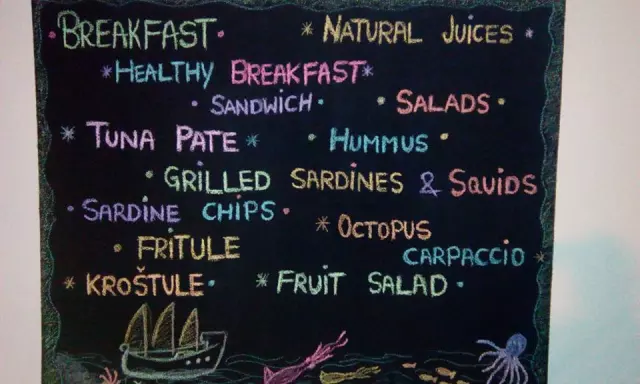 BREAKFAST
NATURAL JUICES
HEALTHY BREAKFAST
SANDWICH
SALADS
TUNA PATE
HUMMUS
GRILLED SARDINES & SQUIDS
SARDINE CHIPS
OCTOPUS CARPACCIO
FRITULE
KROŠTULE
FRUIT SALAD